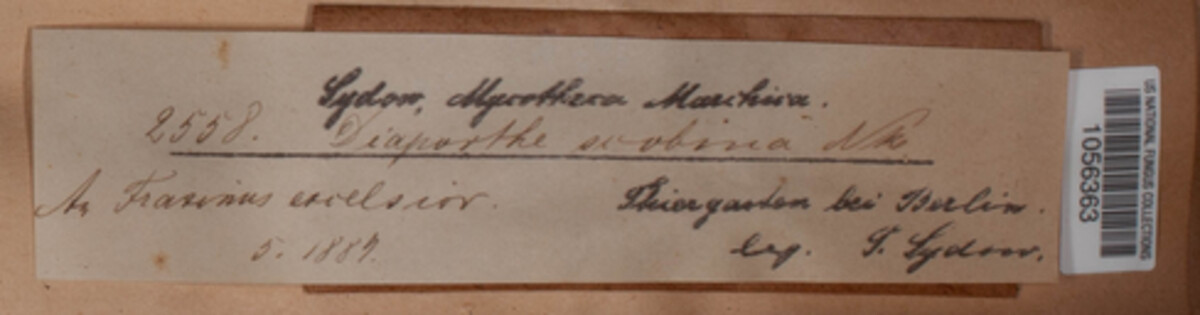 Sydow, Mycotheca Marchica.
2558. Diaporthe scobina Nke
An Fraxinus excelsior.
Thiergarten bei Berlin.
5. 1889.
leg. P. Sydow.
US NATIONAL FUNGUS COLLECTIONS
1056363